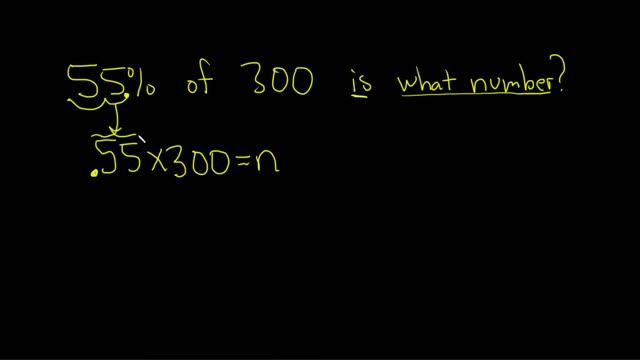 55.% of 300 is what number?
.55×300=n